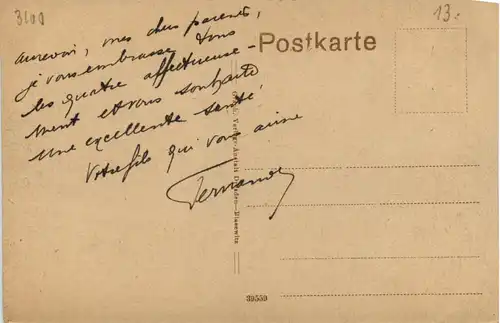 3100
13.-
Postkarte
aurevoir, mes chers parents,
je vous embrasse tous
les quatre affectueuse-
ment et vous souhaite
une excellente santé.
Votre fils qui vous aime
Fernand
Verlags-Anstalt Dresden-Blasewitz
39559